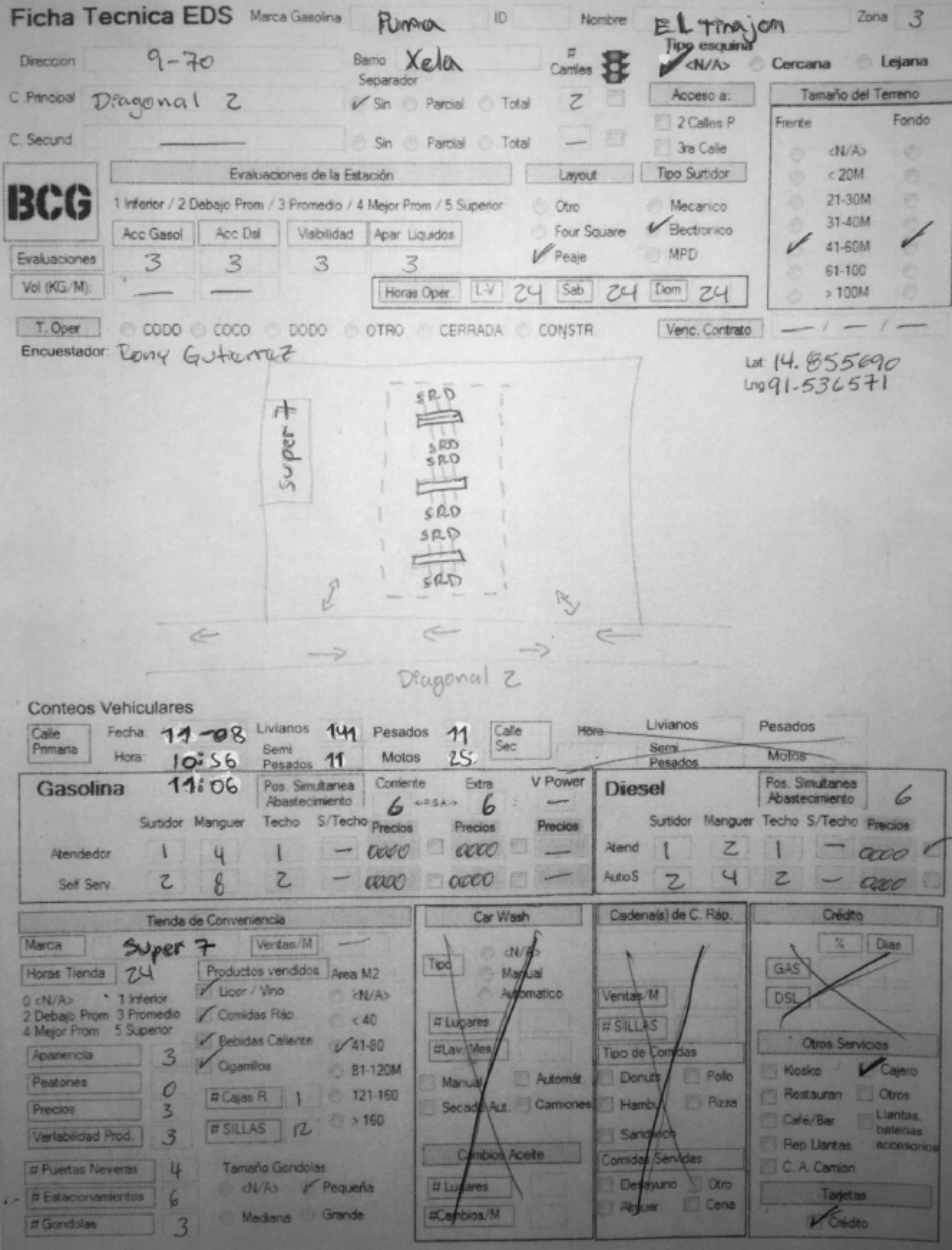 Ficha Tecnica EDS Marca Gasolina Puma ID Nombre EL Tinajon Zona 3
Direccion 9-70 Barrio Xela # Carriles Tipo esquina <N/A> Cercana Lejana
Separador
C .Principal Diagonal 2 Sin Parcial Total 2 Acceso a: Tamaño del Terreno
2 Calles P Frente Fondo
C. Secund. — Sin Parcial Total — 3ra Calle <N/A>
BCG Evaluaciones de la Estación Layout Tipo Surtidor < 20M
1 Inferior / 2 Debajo Prom / 3 Promedio / 4 Mejor Prom / 5 Superior Otro Mecanico 21-30M
Acc Gasol Acc Dsl Visibilidad Apar. Liquidos Four Square Electronico 31-40M
41-60M
Evaluaciones 3 3 3 3 Peaje MPD 61-100
Vol (KG/M): — — Horas Oper. L-V 24 Sab 24 Dom 24 > 100M
T. Oper CODO COCO DODO OTRO CERRADA CONSTR. Venc. Contrato — / — / —
Encuestador: Rony Gutierrez
Lat 14.855690
Lng 91-536571
Super 7
SRD
SRD
SRD
SRD
SRD
SRD
Diagonal 2
Conteos Vehiculares
Calle Primaria Fecha: 11-08 Livianos 141 Pesados 11 Calle Sec Hora Livianos Pesados
Hora 10:56 Semi Pesados 11 Motos 25 Semi Pesados Motos
11:06
Gasolina Pos. Simultanea Abastecimiento Corriente 6 <=S.A.> Extra 6 V Power — Diesel Pos. Simultanea Abastecimiento 6
Surtidor Manguer Techo S/Techo Precios Precios Precios Surtidor Manguer Techo S/Techo Precios
Atendedor 1 4 1 — 0000 0000 — Atend 1 2 1 — 0000
Self Serv. 2 8 2 — 0000 0000 — AutoS 2 4 2 — 0000
Tienda de Conveniencia
Marca Super 7 Ventas/M —
Horas Tienda 24 Productos vendidos Area M2
0 <N/A> 1 Inferior Licor / Vino <N/A>
2 Debajo Prom 3 Promedio Comidas Ráp. < 40
4 Mejor Prom 5 Superior Bebidas Caliente 41-80
Apariencia 3 Cigarrillos 81-120M
Peatones 0 # Cajas R 1 121-160
Precios 3 # SILLAS 12 > 160
Variabilidad Prod. 3
# Puertas Neveras 4 Tamaño Gondolas
# Estacionamientos 6 <N/A> Pequeña
# Gondolas 3 Mediana Grande
Car Wash
Tipo <N/A>
Manual
Automatico
# Lugares
#Lav. Mes
Manual Automát.
Secado Aut. Camiones
Cambios Aceite
# Lugares
#Cambios/M
Cadena(s) de C. Ráp.
Ventas/M
# SILLAS
Tipo de Comidas
Donuts Pollo
Hambu Pizza
Sandwich
Comidas Servidas
Desayuno Otro
Almuer. Cena
Crédito
% Dias
GAS
DSL
Otros Servicios
Kiosko Cajero
Restauran Otros
Café/Bar Llantas, baterias accesorios
Rep Llantas
C. A. Camion
Tarjetas
Crédito